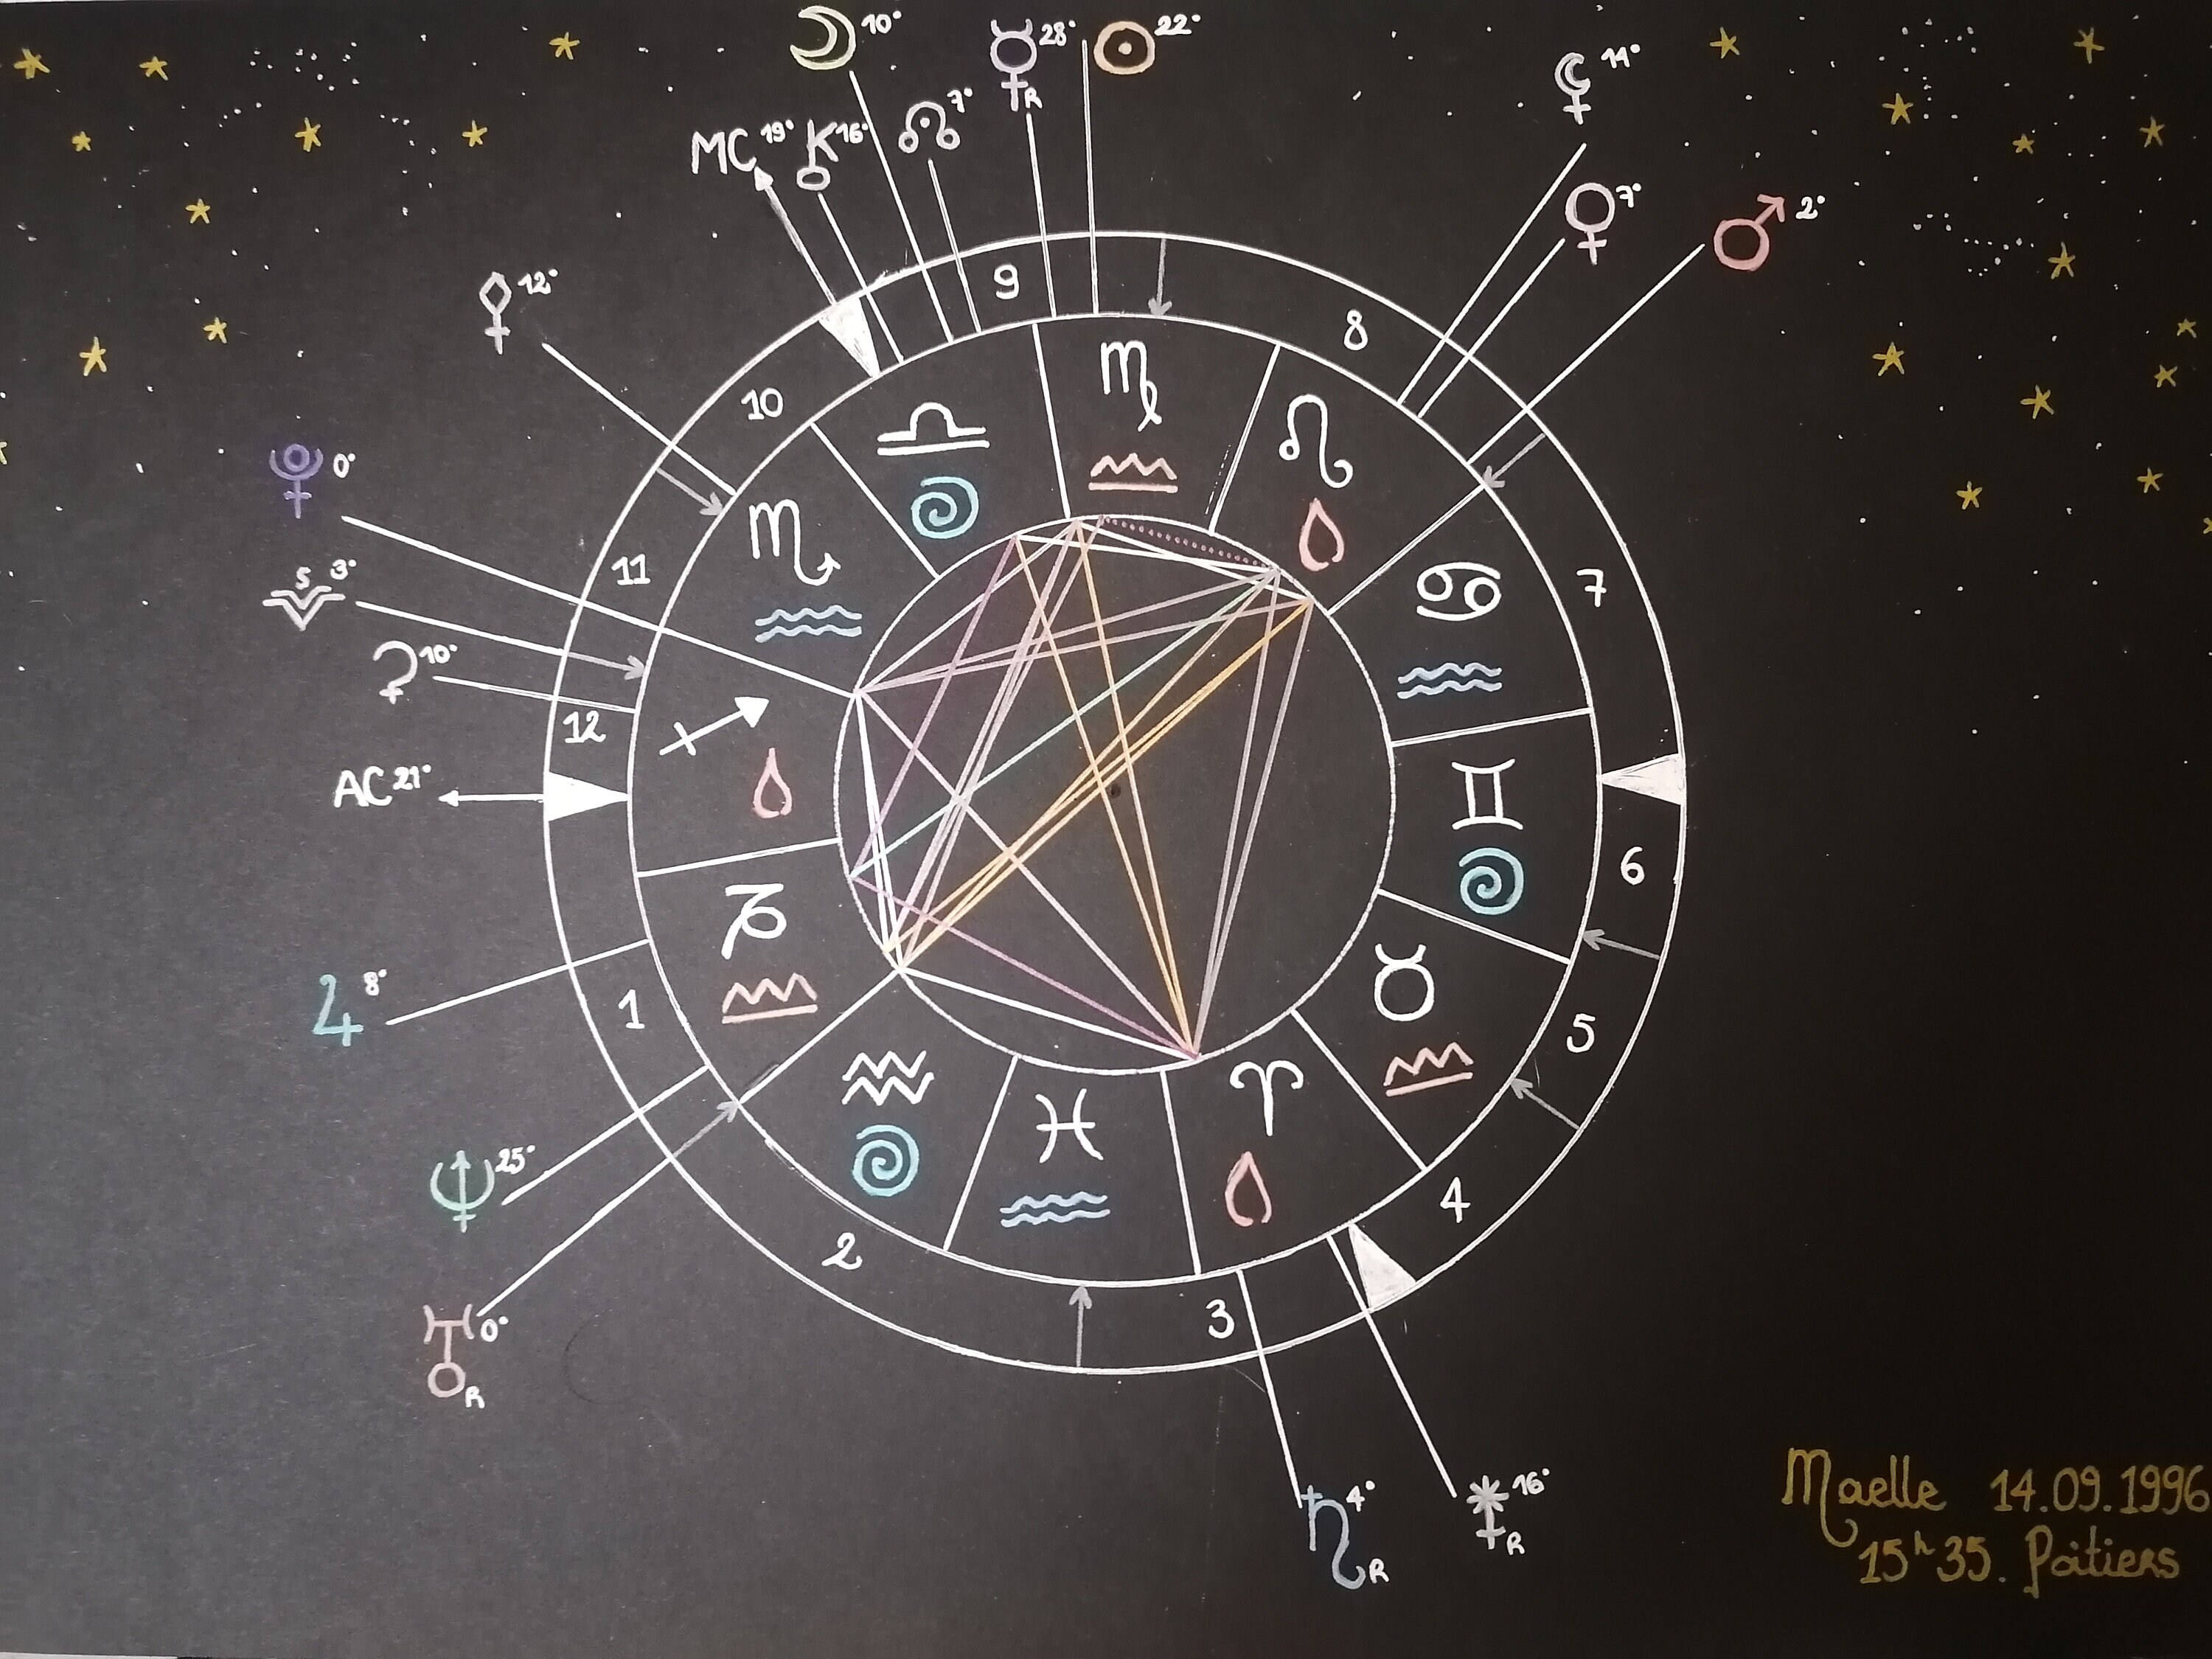 ☽ 10°
☿ R 28°
☉ 22°
⚸ 11°
MC 19°
⚷ 16°
☊ 7°
♀ 7°
♂ 2°
⚴ 12°
9
8
10
♍
♎
♌
♇ 0°
♏
11
7
♋
5 3°
⚳ 10°
12
♐
♊
AC 21°
6
♑
♉
♃ 8°
1
5
♒
♈
♓
♆ 25°
4
2
3
♅ R 0°
♄ R 4°
⚵ R 16°
Maelle 14.09.1996
15h35. Poitiers